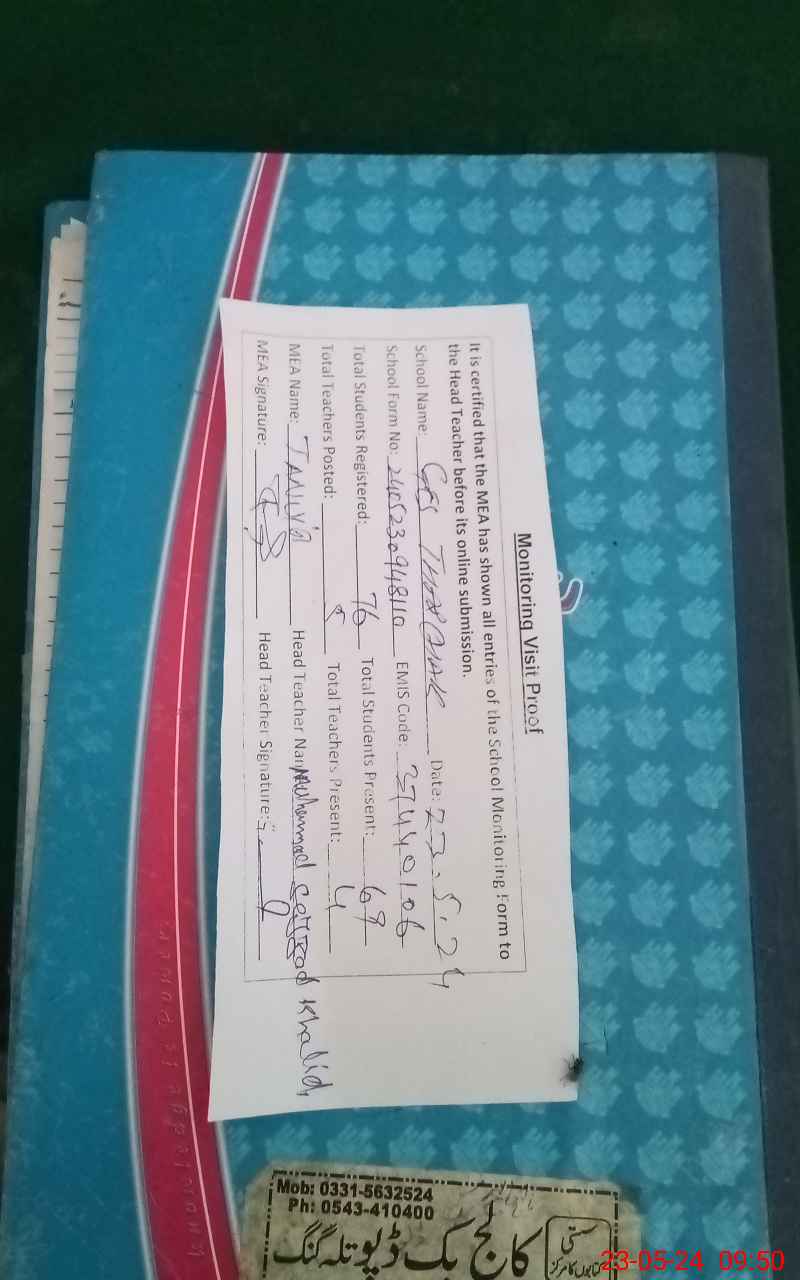 Monitoring Visit Proof
It is certified that the MEA has shown all entries of the School Monitoring Form to
the Head Teacher before its online submission.
School Name: GES Date: 23.5.24
School Form No: 2405230948110 EMIS Code: 37440106
Total Students Registered: 76 Total Students Present: 69
Total Teachers Posted: 5 Total Teachers Present: 4
MEA Name: Head Teacher Name: Muhammad Khalid,
MEA Signature: Head Teacher Signature:
Mob: 0331-5632524
Ph: 0543-410400
کالج بک ڈپو تلہ گنگ
سستی
کتابوں کا مرکز
23-05-24 09:50